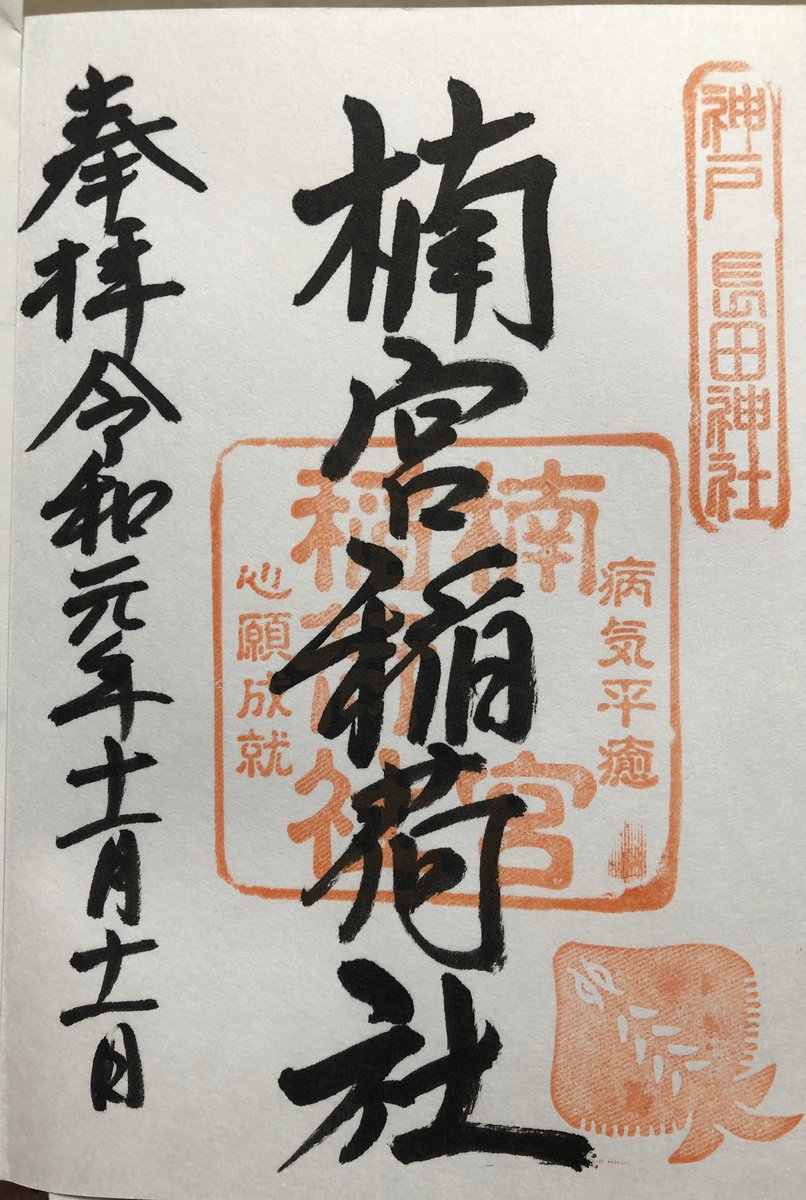 神戸 長田神社
楠宮稲荷社
病気平癒
楠宮
稲荷社
心願成就
奉拝令和元年十一月十一日